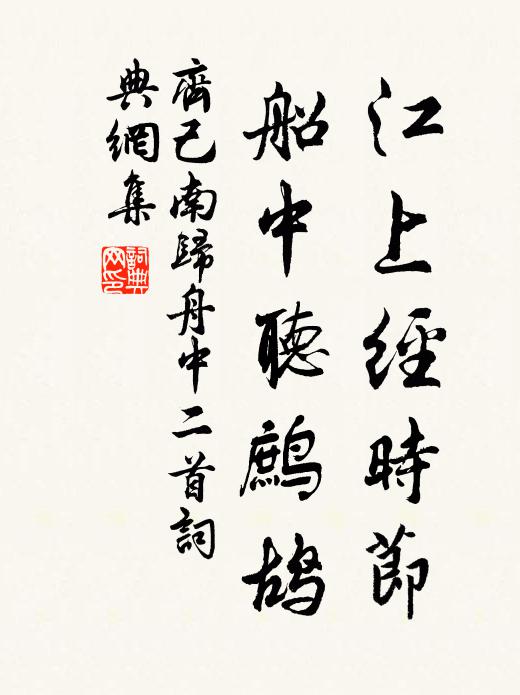 江上經時節
船中聽鷓鴣
齊己南歸舟中二首詞
典網集
詞典網印